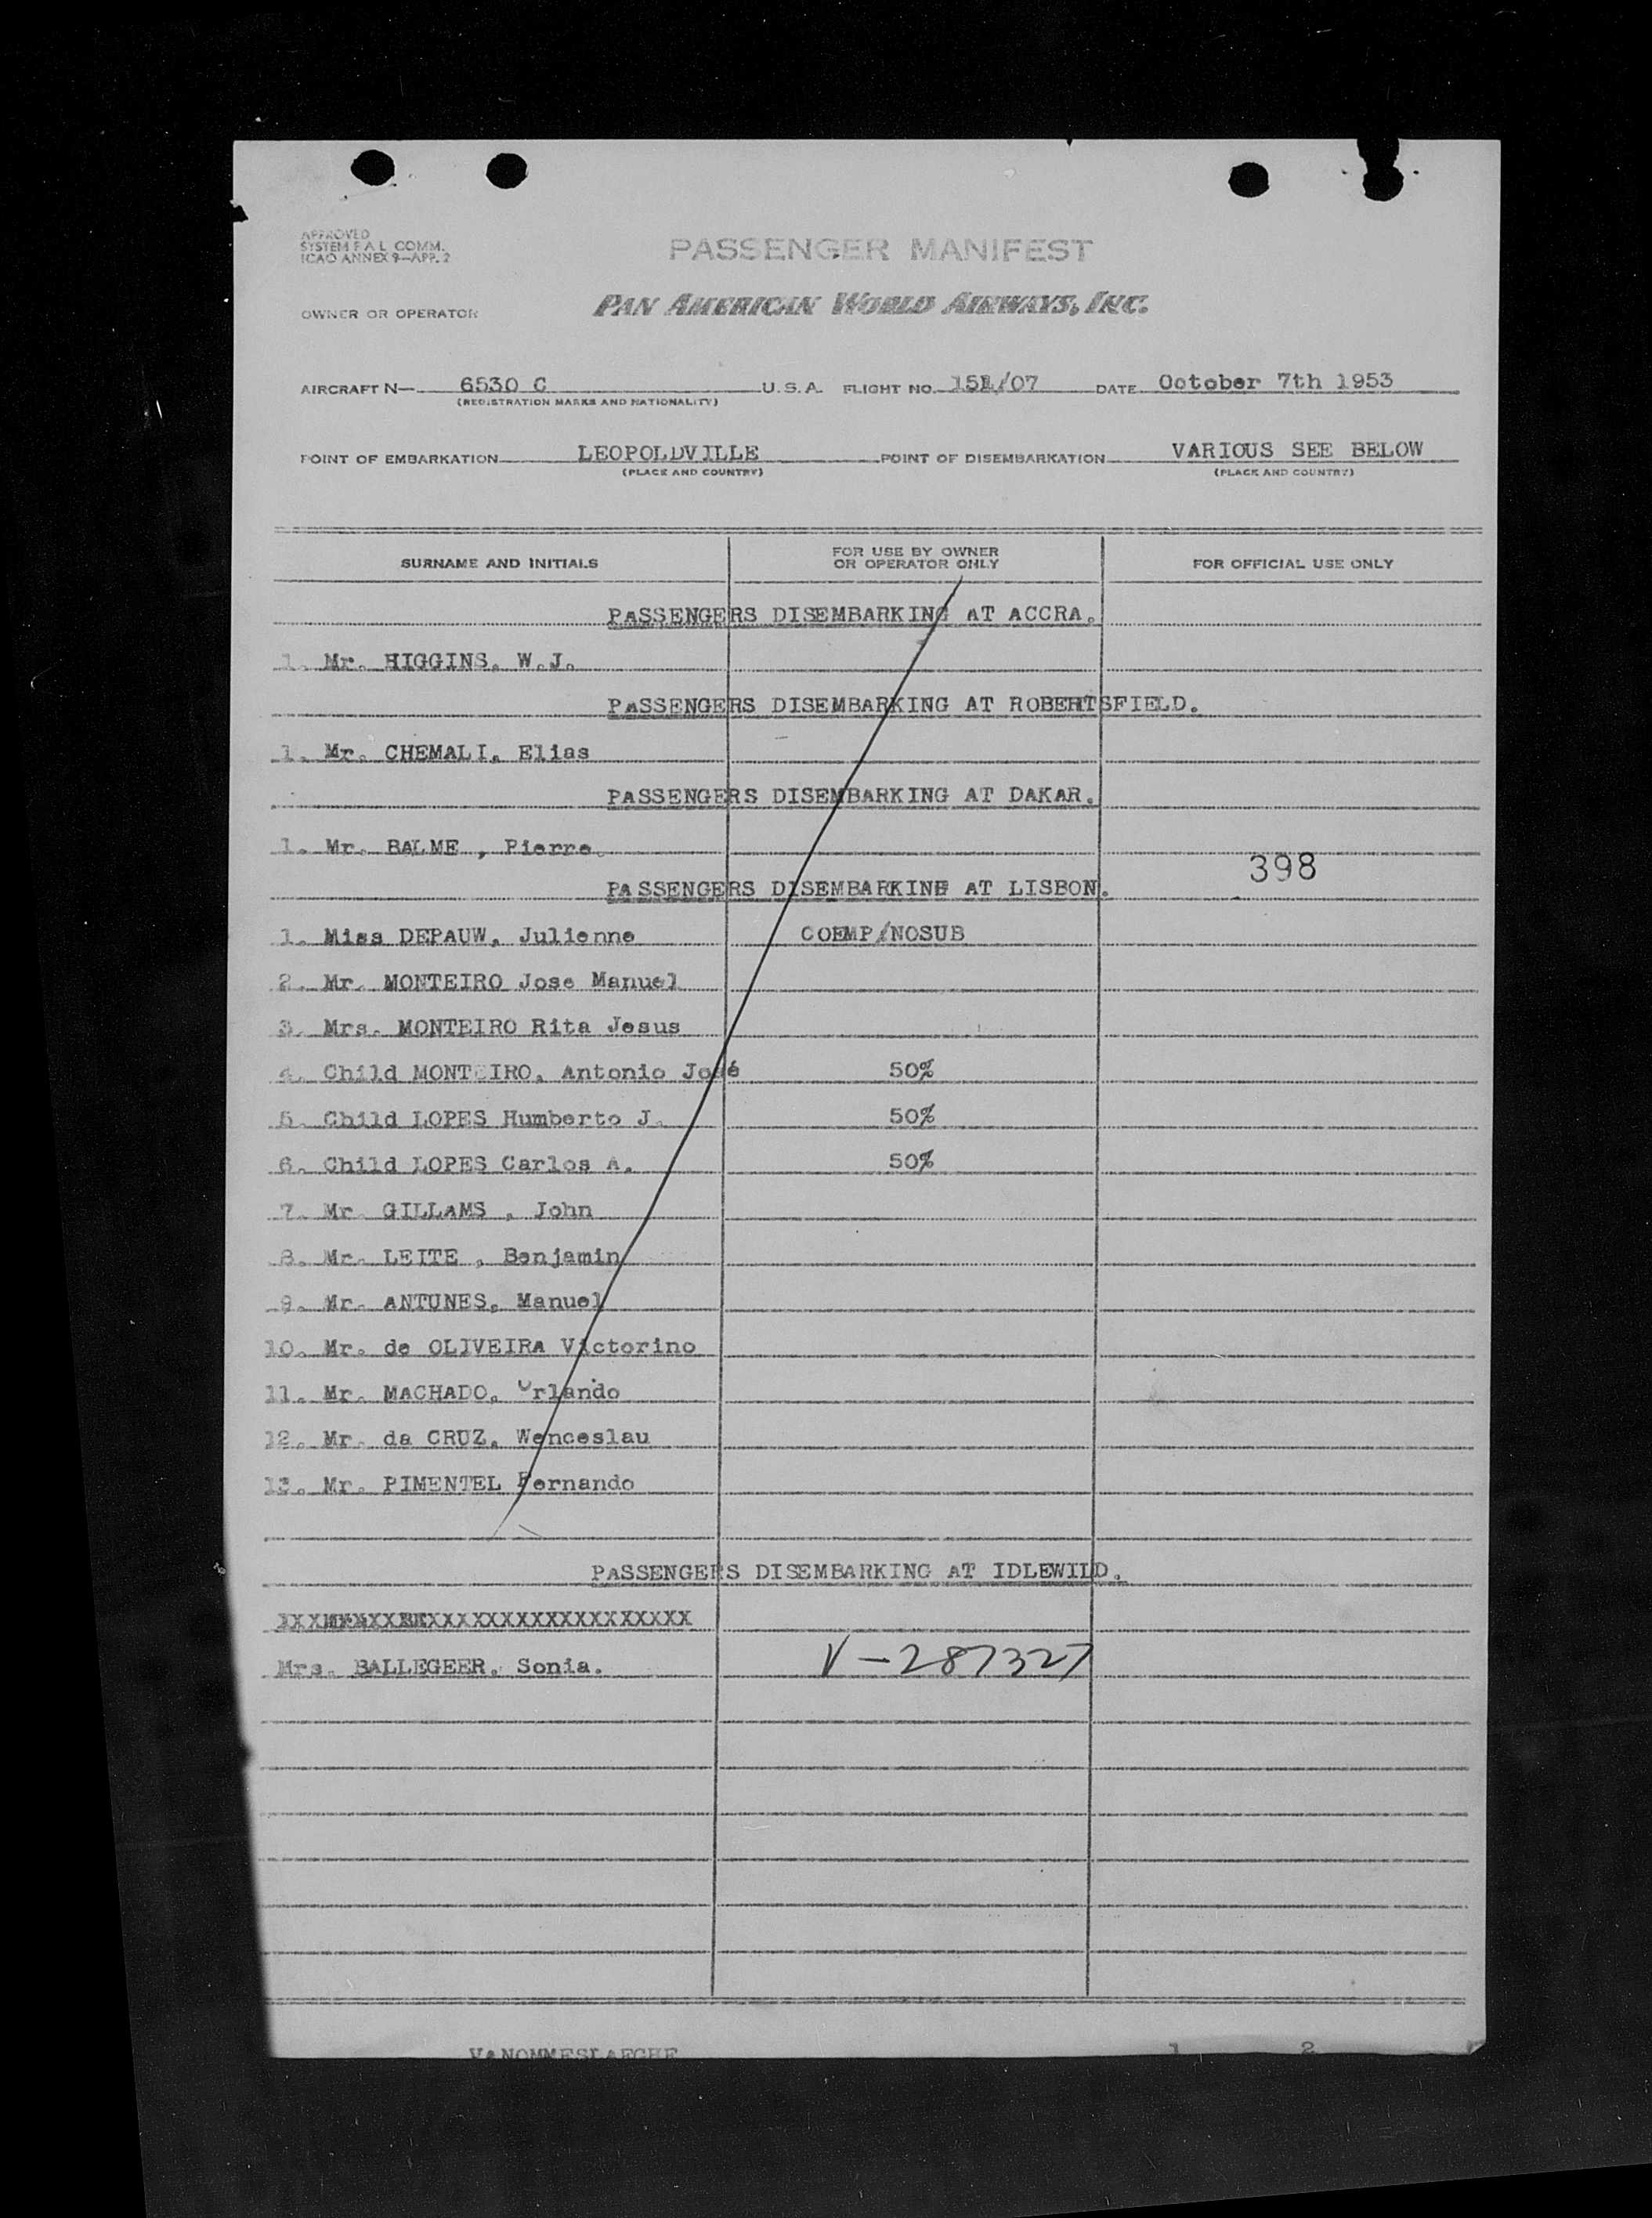 APPROVED
SYSTEM F A L COMM.
ICAO ANNEX 9—APP. 2
PASSENGER MANIFEST
OWNER OR OPERATOR PAN AMERICAN WORLD AIRWAYS, INC.
AIRCRAFT N— 6530 C U.S.A. FLIGHT NO. /07 DATE October 7th 1953
(REGISTRATION MARKS AND NATIONALITY)
POINT OF EMBARKATION LEOPOLDVILLE POINT OF DISEMBARKATION VARIOUS SEE BELOW
(PLACE AND COUNTRY) (PLACE AND COUNTRY)
SURNAME AND INITIALS FOR USE BY OWNER OR OPERATOR ONLY FOR OFFICIAL USE ONLY
PASSENGERS DISEMBARKING AT ACCRA.
1. Mr. HIGGINS, W.J.
PASSENGERS DISEMBARKING AT ROBERTSFIELD.
1. Mr. CHEMALI, Elias
PASSENGERS DISEMBARKING AT DAKAR.
1. Mr. BALME , Pierre.
398
PASSENGERS DISEMBARKING AT LISBON.
1. Miss DEPAUW, Julienne COEMP/NOSUB
2. Mr. MONTEIRO Jose Manuel
3. Mrs. MONTEIRO Rita Jesus
4. Child MONTEIRO, Antonio José 50%
5. Child LOPES Humberto J. 50%
6. Child LOPES Carlos A. 50%
7. Mr. GILLAMS , John
8. Mr. LEITE , Benjamin
9. Mr. ANTUNES, Manuel
10. Mr. de OLIVEIRA Victorino
11. Mr. MACHADO, Orlando
12. Mr. da CRUZ, Wenceslau
13. Mr. PIMENTEL Fernando
PASSENGERS DISEMBARKING AT IDLEWILD.
Mrs. BALLEGEER, Sonia. V-287327
VANOMMESLAEGHE 1 2